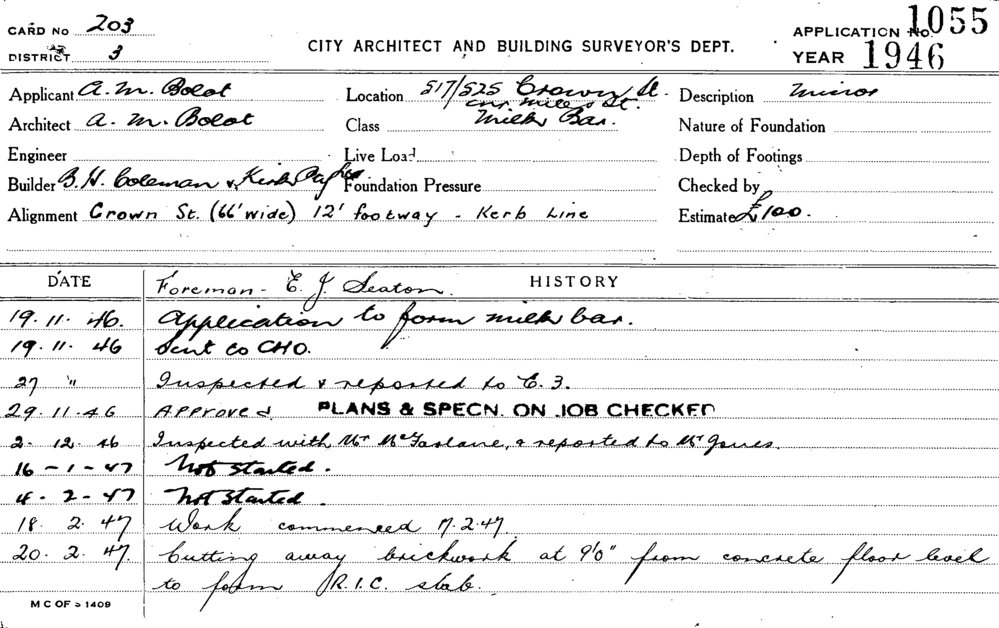 CARD No 203
DISTRICT 3
CITY ARCHITECT AND BUILDING SURVEYOR'S DEPT.
APPLICATION No. 1055
YEAR 1946
Applicant A. M. Bolot
Location 517/525 Crown St.
cnr. Miles St.
Description Minor
Architect A. M. Bolot
Class Milk Bar.
Nature of Foundation
Engineer
Live Load
Depth of Footings
Builder B. H. Coleman & Kirk
Foundation Pressure
Checked by
Alignment Crown St. (66' wide) 12' footway - Kerb Line
Estimate £100.
DATE
HISTORY
Foreman - E. J. Seaton.
19.11.46. Application to form milk bar.
19.11.46 Sent to CHO.
27 " Inspected & reported to E. 3.
29.11.46 Approved PLANS & SPECN. ON JOB CHECKED
2. 12. 46 Inspected with Mr McFarlane, & reported to Mr Jones.
16-1-47 Not started.
4.2-47 Not started.
18. 2. 47 Work commenced 17.2.47
20. 2. 47. Cutting away brickwork at 9'0" from concrete floor level
to form R.I.C. slab.
M C OF S 1409